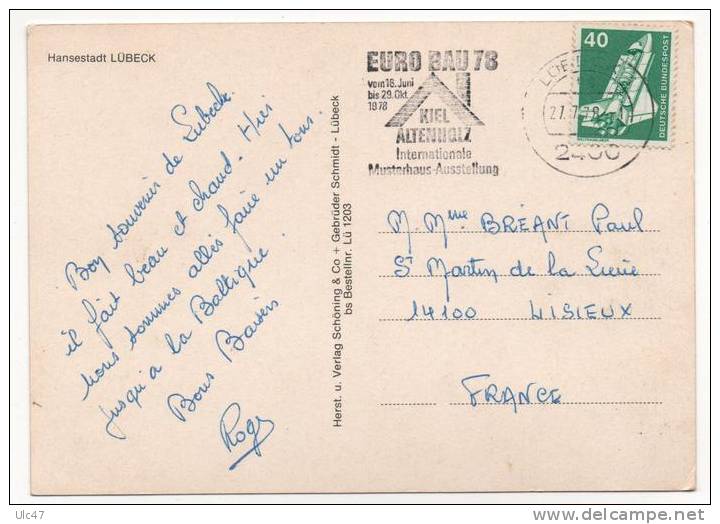 Hansestadt LÜBECK
EURO BAU 78
vom 16. Juni
bis 29. Okt.
1978
KIEL
ALTENHOLZ
Internationale
Musterhaus-Ausstellung
40
DEUTSCHE BUNDESPOST
27.7.78
2400
Bon souvenir de Lubeck.
il fait beau et chaud. Hier
nous sommes allés faire un tour
jusqu'à la Baltique.
Bons Baisers
Roger
Herst. u. Verlag Schöning & Co + Gebrüder Schmidt - Lübeck
bs Bestellnr. Lü 1203
M. Mme BRÉANT Paul
St Martin de la Lieue
14100 LISIEUX
FRANCE
Ulc47
delcampe.net